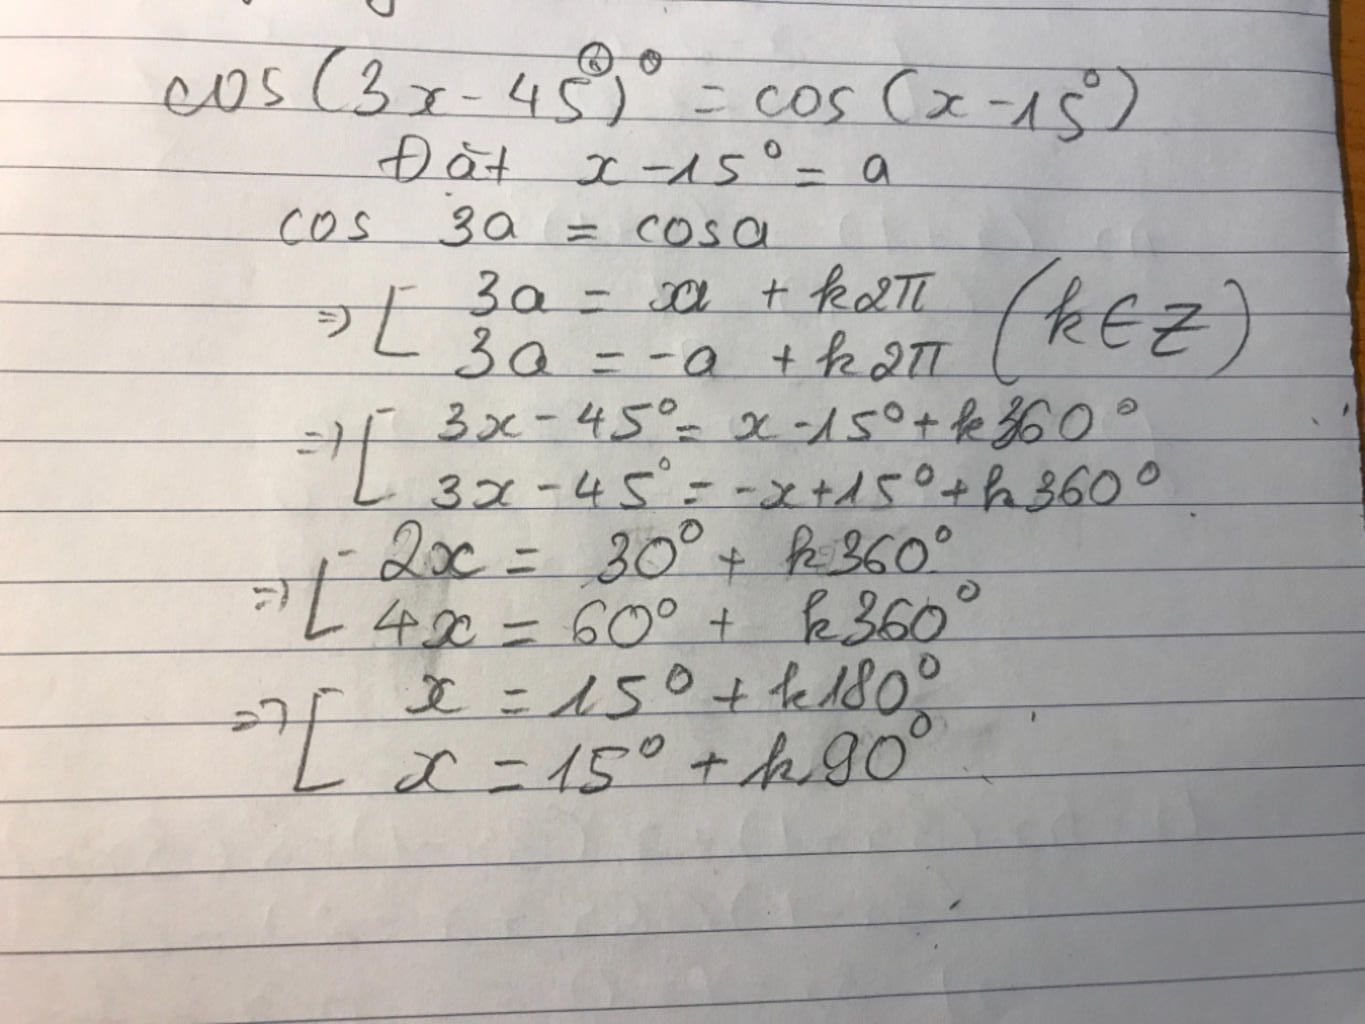 cos(3x - 45°)° = cos(x - 15°)
Đặt x - 15° = a
cos 3a = cosa
=> [ 3a = a + k2π (k∈Z)
3a = -a + k2π
=> [ 3x - 45° = x - 15° + k360°
3x - 45° = -x + 15° + k360°
=> [ 2x = 30° + k360°
4x = 60° + k360°
=> [ x = 15° + k180°
x = 15° + k90°